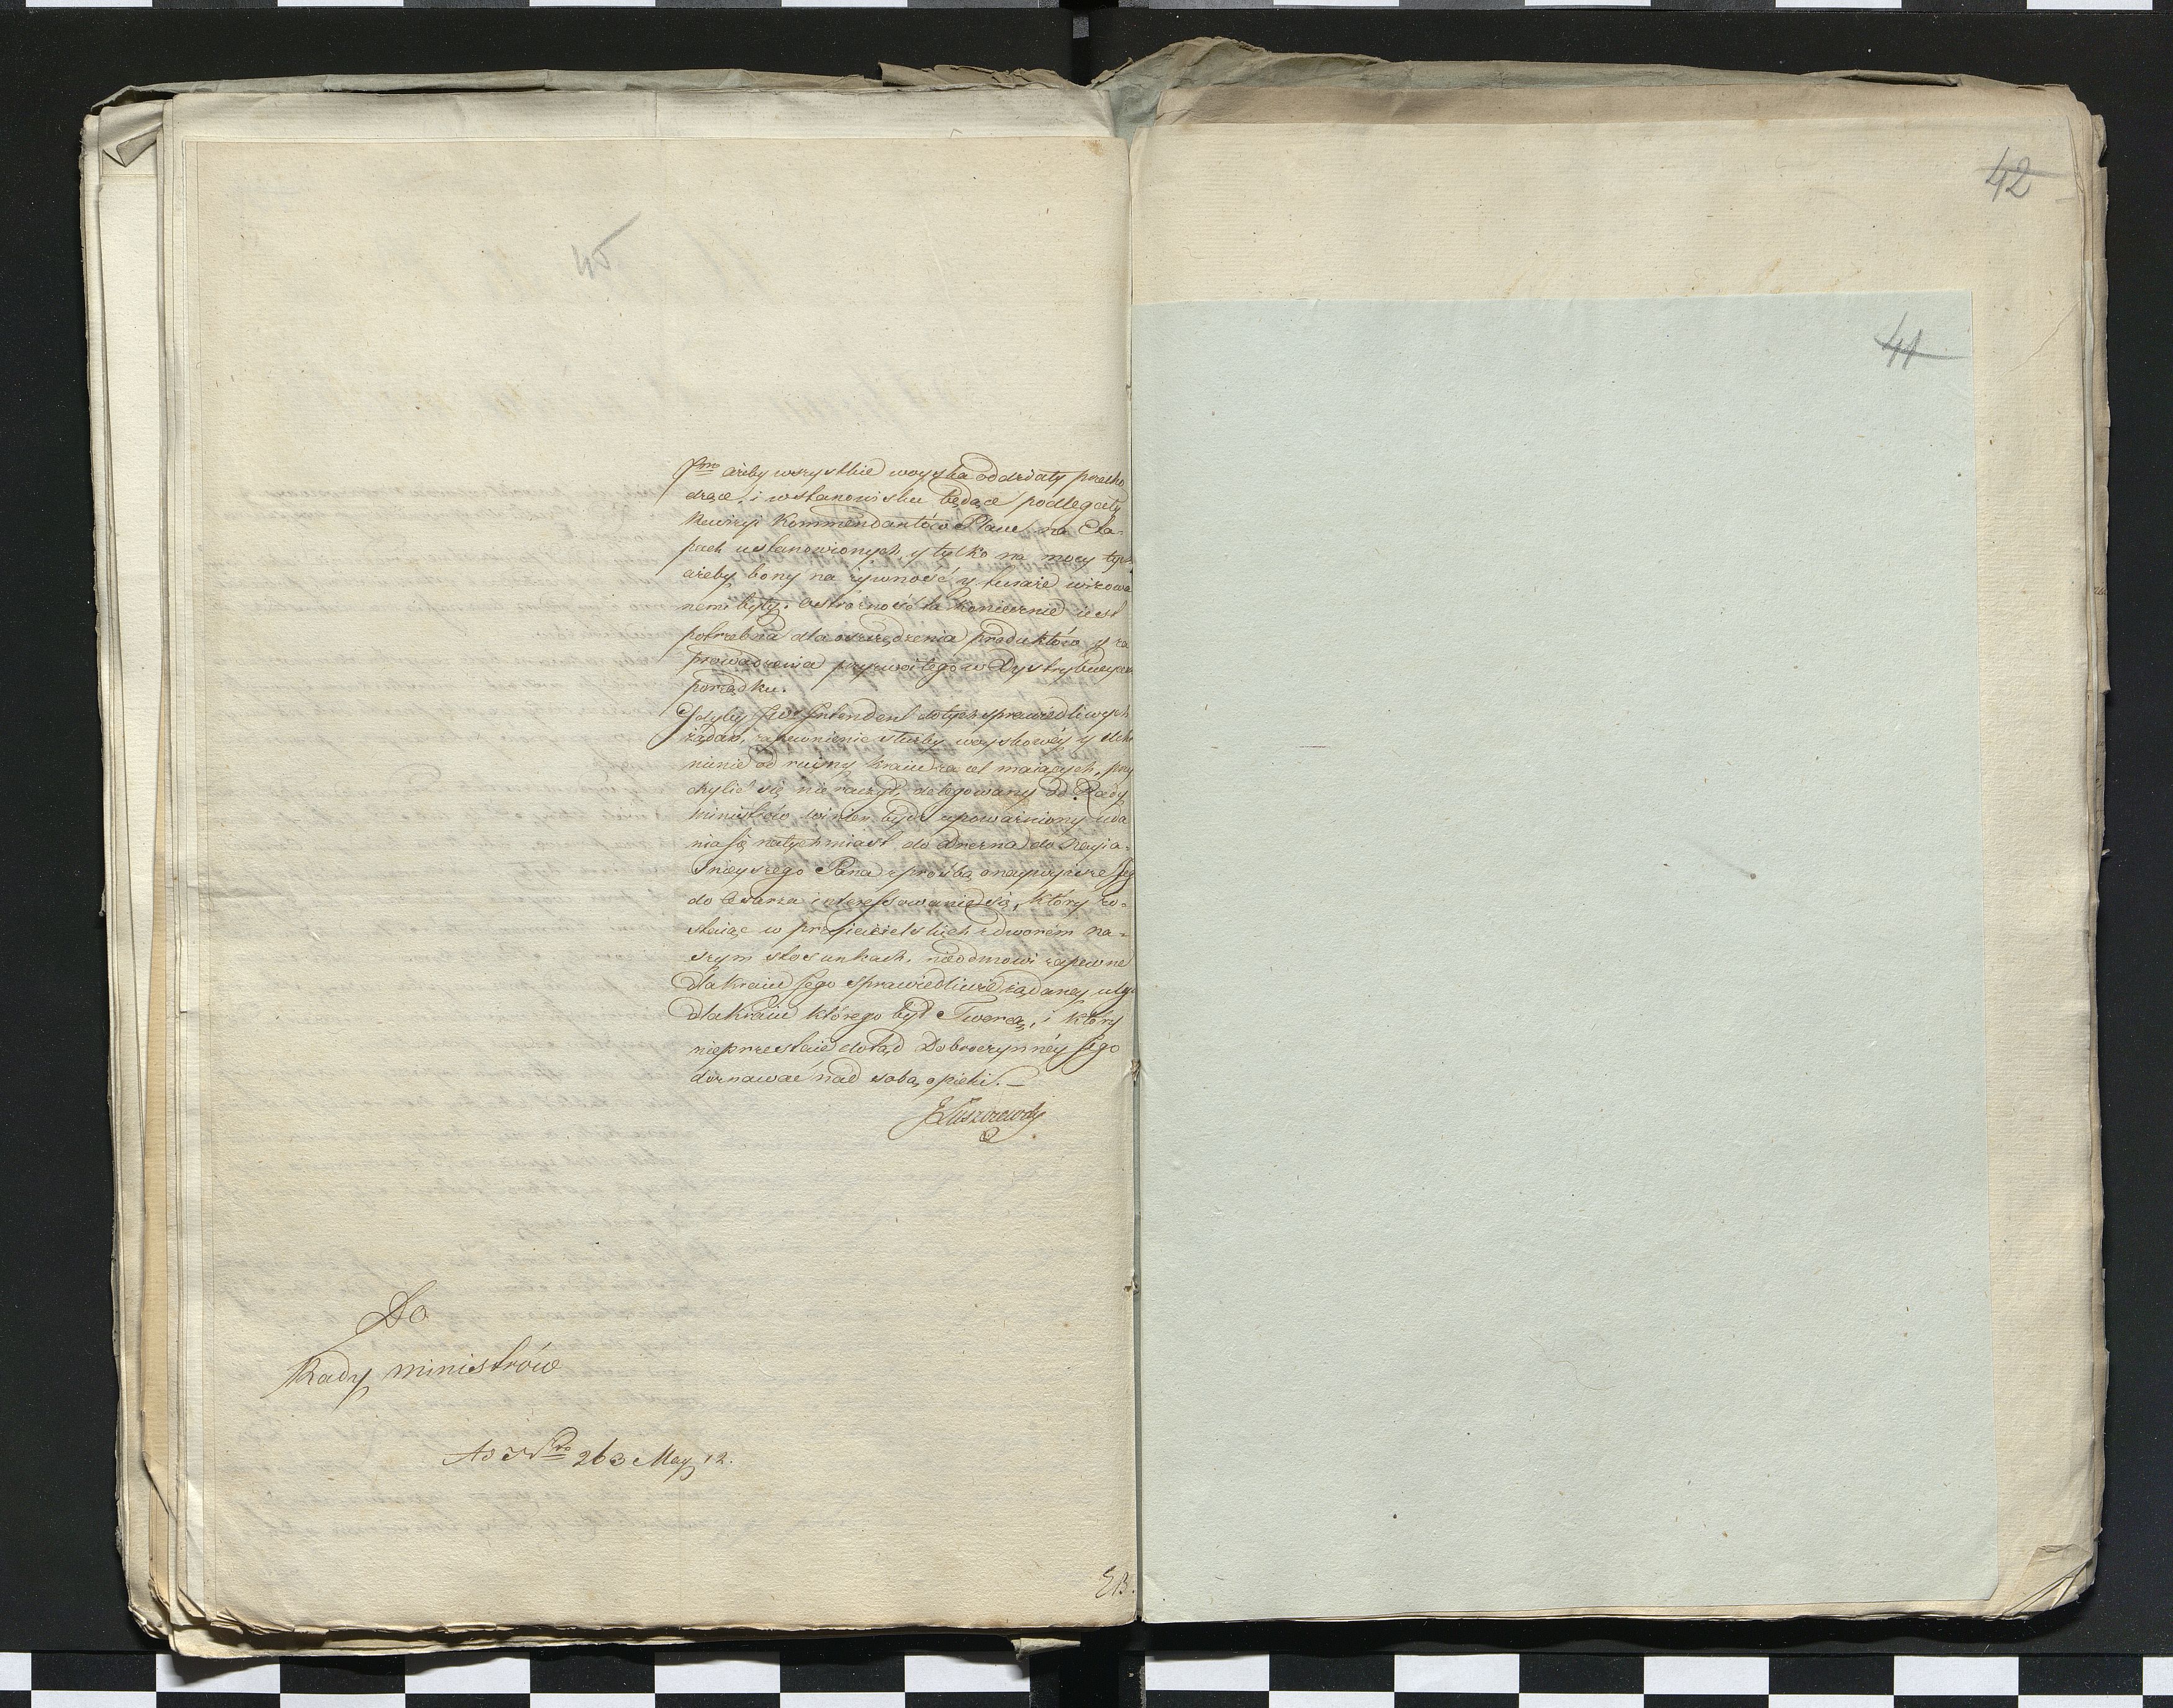 45
5mo ażeby wszystkie woyska oddziały przecho
dzące i w stanowisku będące podlegały
Rewizyi Kommendantów Place na Eta-
pach ustanowionych, y tylko na mocy tych
ażeby bony na żywność y furaże wizowa
nemi były. Ostrożność ta koniecznie iest
potrzebna dla oszczędzenia produktów y za
prowadzenia przyzwoitego w Dystrybucyach
porządku.
Gdyby JW Intendent do tych sprawiedliwych
żądań, zapewnienie służby woyskowéy y uchro
nienie od ruiny kraiu za cel maiących, przy
chylić się nie raczył, delegowany od Rady
Ministrów winien bydź upoważniony uda
nia się natychmiast do Drezna do Nayia-
śnieyszego Pana z prośbą o naywyższe Jego
do Cesarza interessowanie się, który zo-
staiąc w przyiacielskich z dworem na-
szym stosunkach, nieodmówi zapewne
dla kraiu Jego sprawiedliwie żądaney ulgi
dla kraiu którego był Twórcą, i który
nieprzestaie dotąd Dobroczynnéy Jego
doznawać nad sobą opieki. —
Łuszczewski
Do
Rady Ministrów
Ad Nro 263 May 12.
EB.
42
41